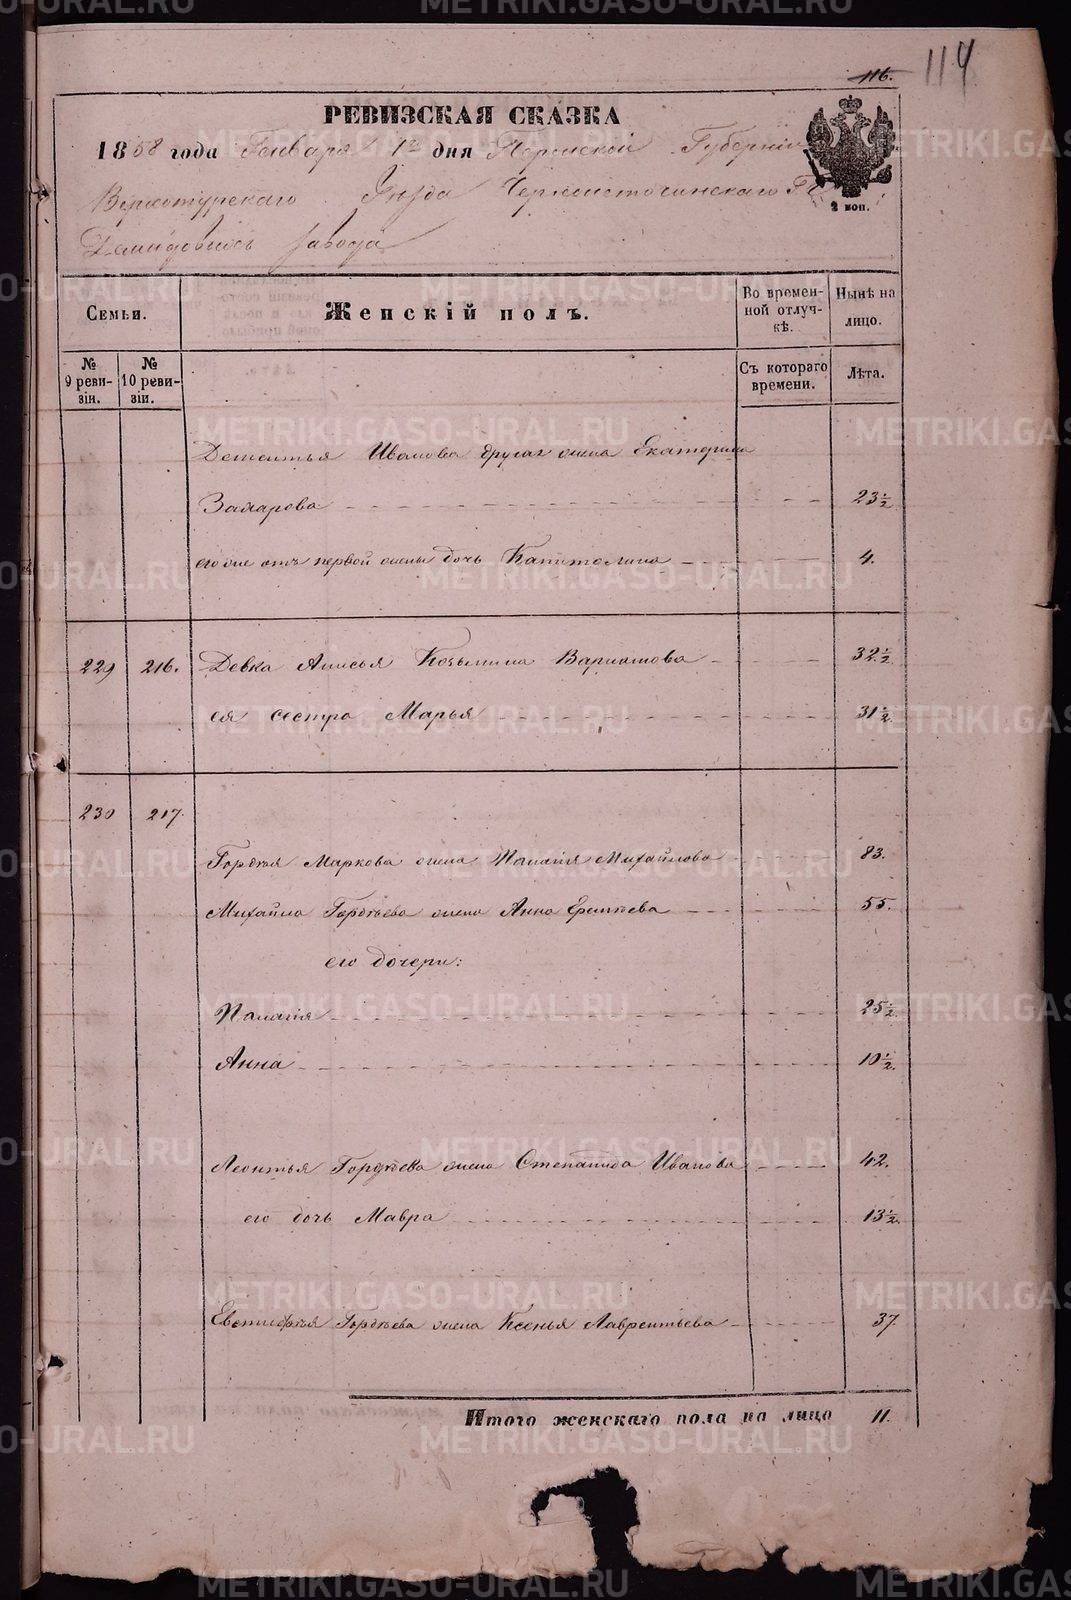 114
116.
РЕВИЗСКАЯ СКАЗКА
1858 года Генваря 1го дня Пермской Губерніи
Верхотурскаго Уѣзда Черноисточинскаго Гг
Демидовыхъ завода
2 коп.
Семьи.
Женскій полъ.
Во временной отлучкѣ.
Нынѣ на лицо.
№ 9 ревизіи.
№ 10 ревизіи.
Съ котораго времени.
Лѣта.
Дементья Иванова другая жена Екатерина
Захарова 23½
его же отъ первой жены дочь Капитолина 4.
229 216. Девка Анисья Козьмина 32½
ея сестра Марья 31½
230 217.
Гордѣя Маркова жена Палагія Михайлова 83.
Михайла Гордѣева жена Анна Еремѣева 55.
его дочери:
Палагія 25½
Анна 10½
Леонтья Гордѣева жена Степанида Иванова 42.
его дочь Мавра 13½
Евстифѣя Гордѣева жена Ксенья Лаврентьева 37.
Итого женскаго пола на лицо 11.
METRIKI.GASO-URAL.RU